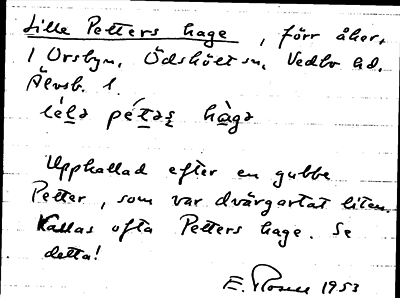 Lille Petters hage, förr åker,
i Orsbyn, Ödskölt sn, Vedbo hd.
Älvsb. l.
lélə pétəʂ hàgə
Uppkallad efter en gubbe
Petter, som var dvärgartat liten.
Kallas ofta Petters hage. Se
detta!
E. Rosell 1953